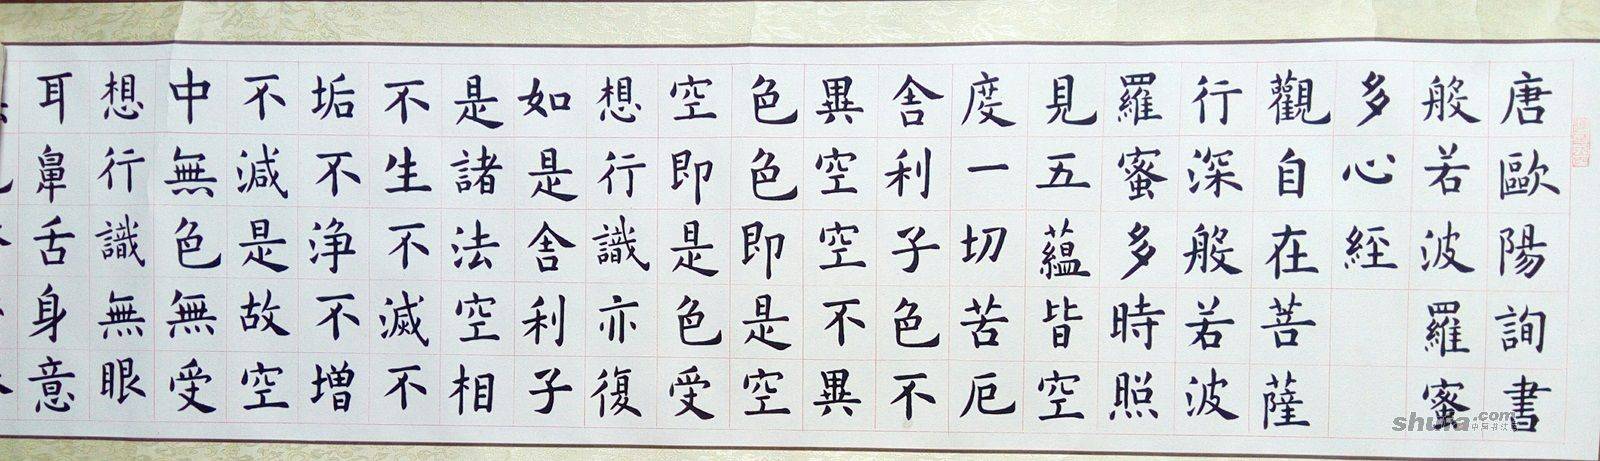 唐歐陽詢書
般若波羅蜜
多心經
觀自在菩薩
行深般若波
羅蜜多時照
見五蘊皆空
度一切苦厄
舍利子色不
異空空不異
色色即是空
空即是色受
想行識亦復
如是舍利子
是諸法空相
不生不滅不
垢不浄不增
不減是故空
中無色無受
想行識無眼
耳鼻舌身意
shufa.com